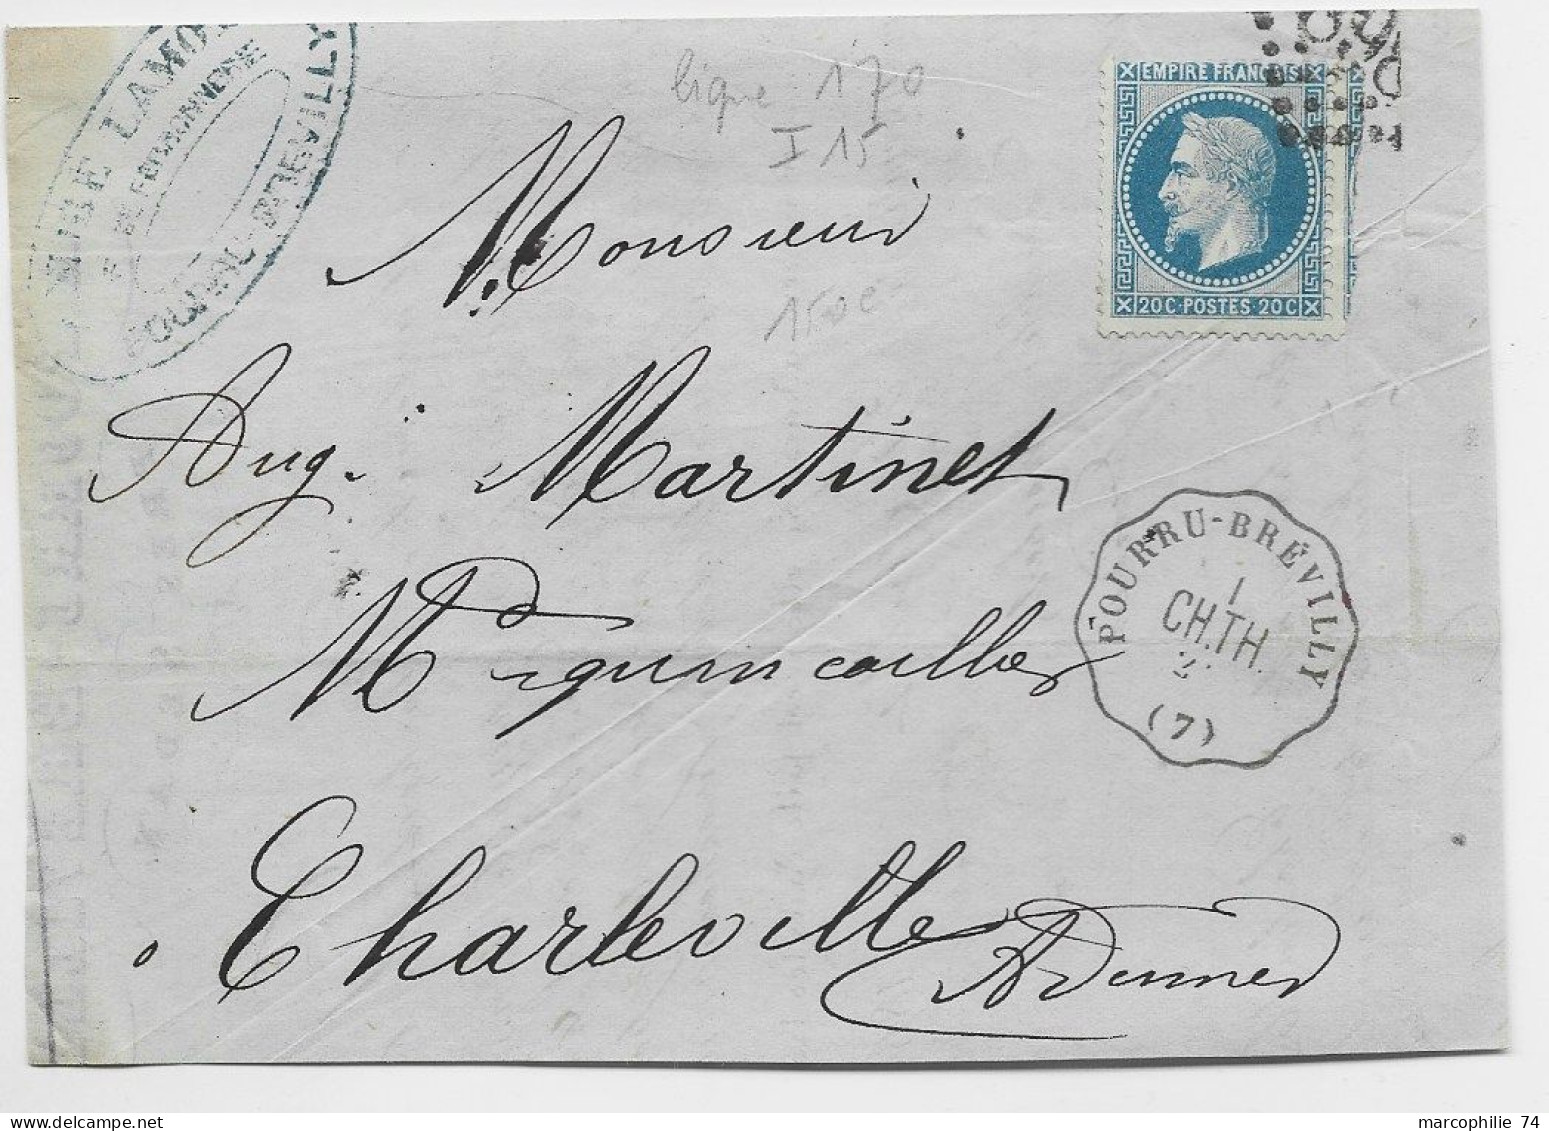 LAMO
POURU-BREVILLY
ligne 170
I 15
150€
EMPIRE FRANCAIS
20C·POSTES 20C
Monsieur
Aug. Martinet
Md quincailler
Charleville
Ardennes
POURRU-BRÉVILLY
1
CH.TH.
2
(7)
marcophilie 74